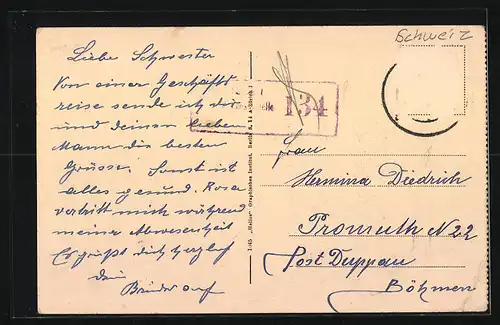 Schweiz
Liebe Schwester
Von einer Geschäfts
reise sende ich dir
und deinen lieben
Mann die besten
Grüsse. Sonst ist
alles gesund. Rosa
vertritt mich während
meine Abwesenheit
Es grüßt dich herzlich
dein
Bruder
134
"Helios" Graphisches Institut, Berlin
Frau
Hermina Diedrich
Promuth N 22
Post Duppau
Böhmen